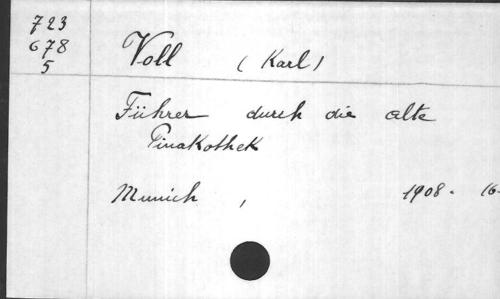 723
678
5
Voll (Karl)
Führer durch die alte
Pinakothek
Munich, 1908. 16.